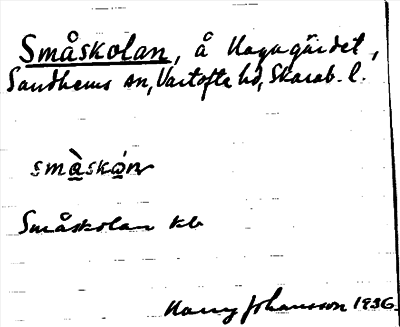 Småskolan, å Hagagärdet,
Sandhems sn, Vartofta hd, Skarab. l.
småskơn
Småskolan kb
Harry Johansson 1936.